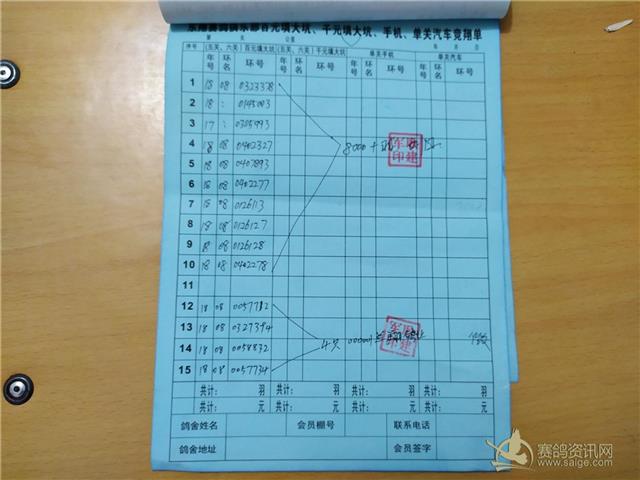 百元填大坑、千元填大坑、手机、单关汽车竞翔单
序号 (五关、六关)百元填大坑 (五关、六关)千元填大坑 单关手机 单关汽车
年号 环名 环号 年号 环名 环号 年号 环名 环号 年号 环名 环号
1 18 08 0323378
2 18 : 0145003
3 17 : 0305993
4 18 08 0402327 8000+
5 18 08 0407893
6 18 08 0402277
7 18 08 0126113
8 18 08 0126127
9 18 08 0126128
10 18 08 0402278
11
12 18 08 0057712
13 18 08 0327394
14 18 08 0058832 4只
15 18 08 0057734
共计: 羽 共计: 羽 共计: 羽 共计: 羽
共计: 元 共计: 元 共计: 元 共计: 元
鸽舍姓名 会员棚号 联系电话
鸽舍地址 会员签字
赛鸽资讯网
www.saige.com